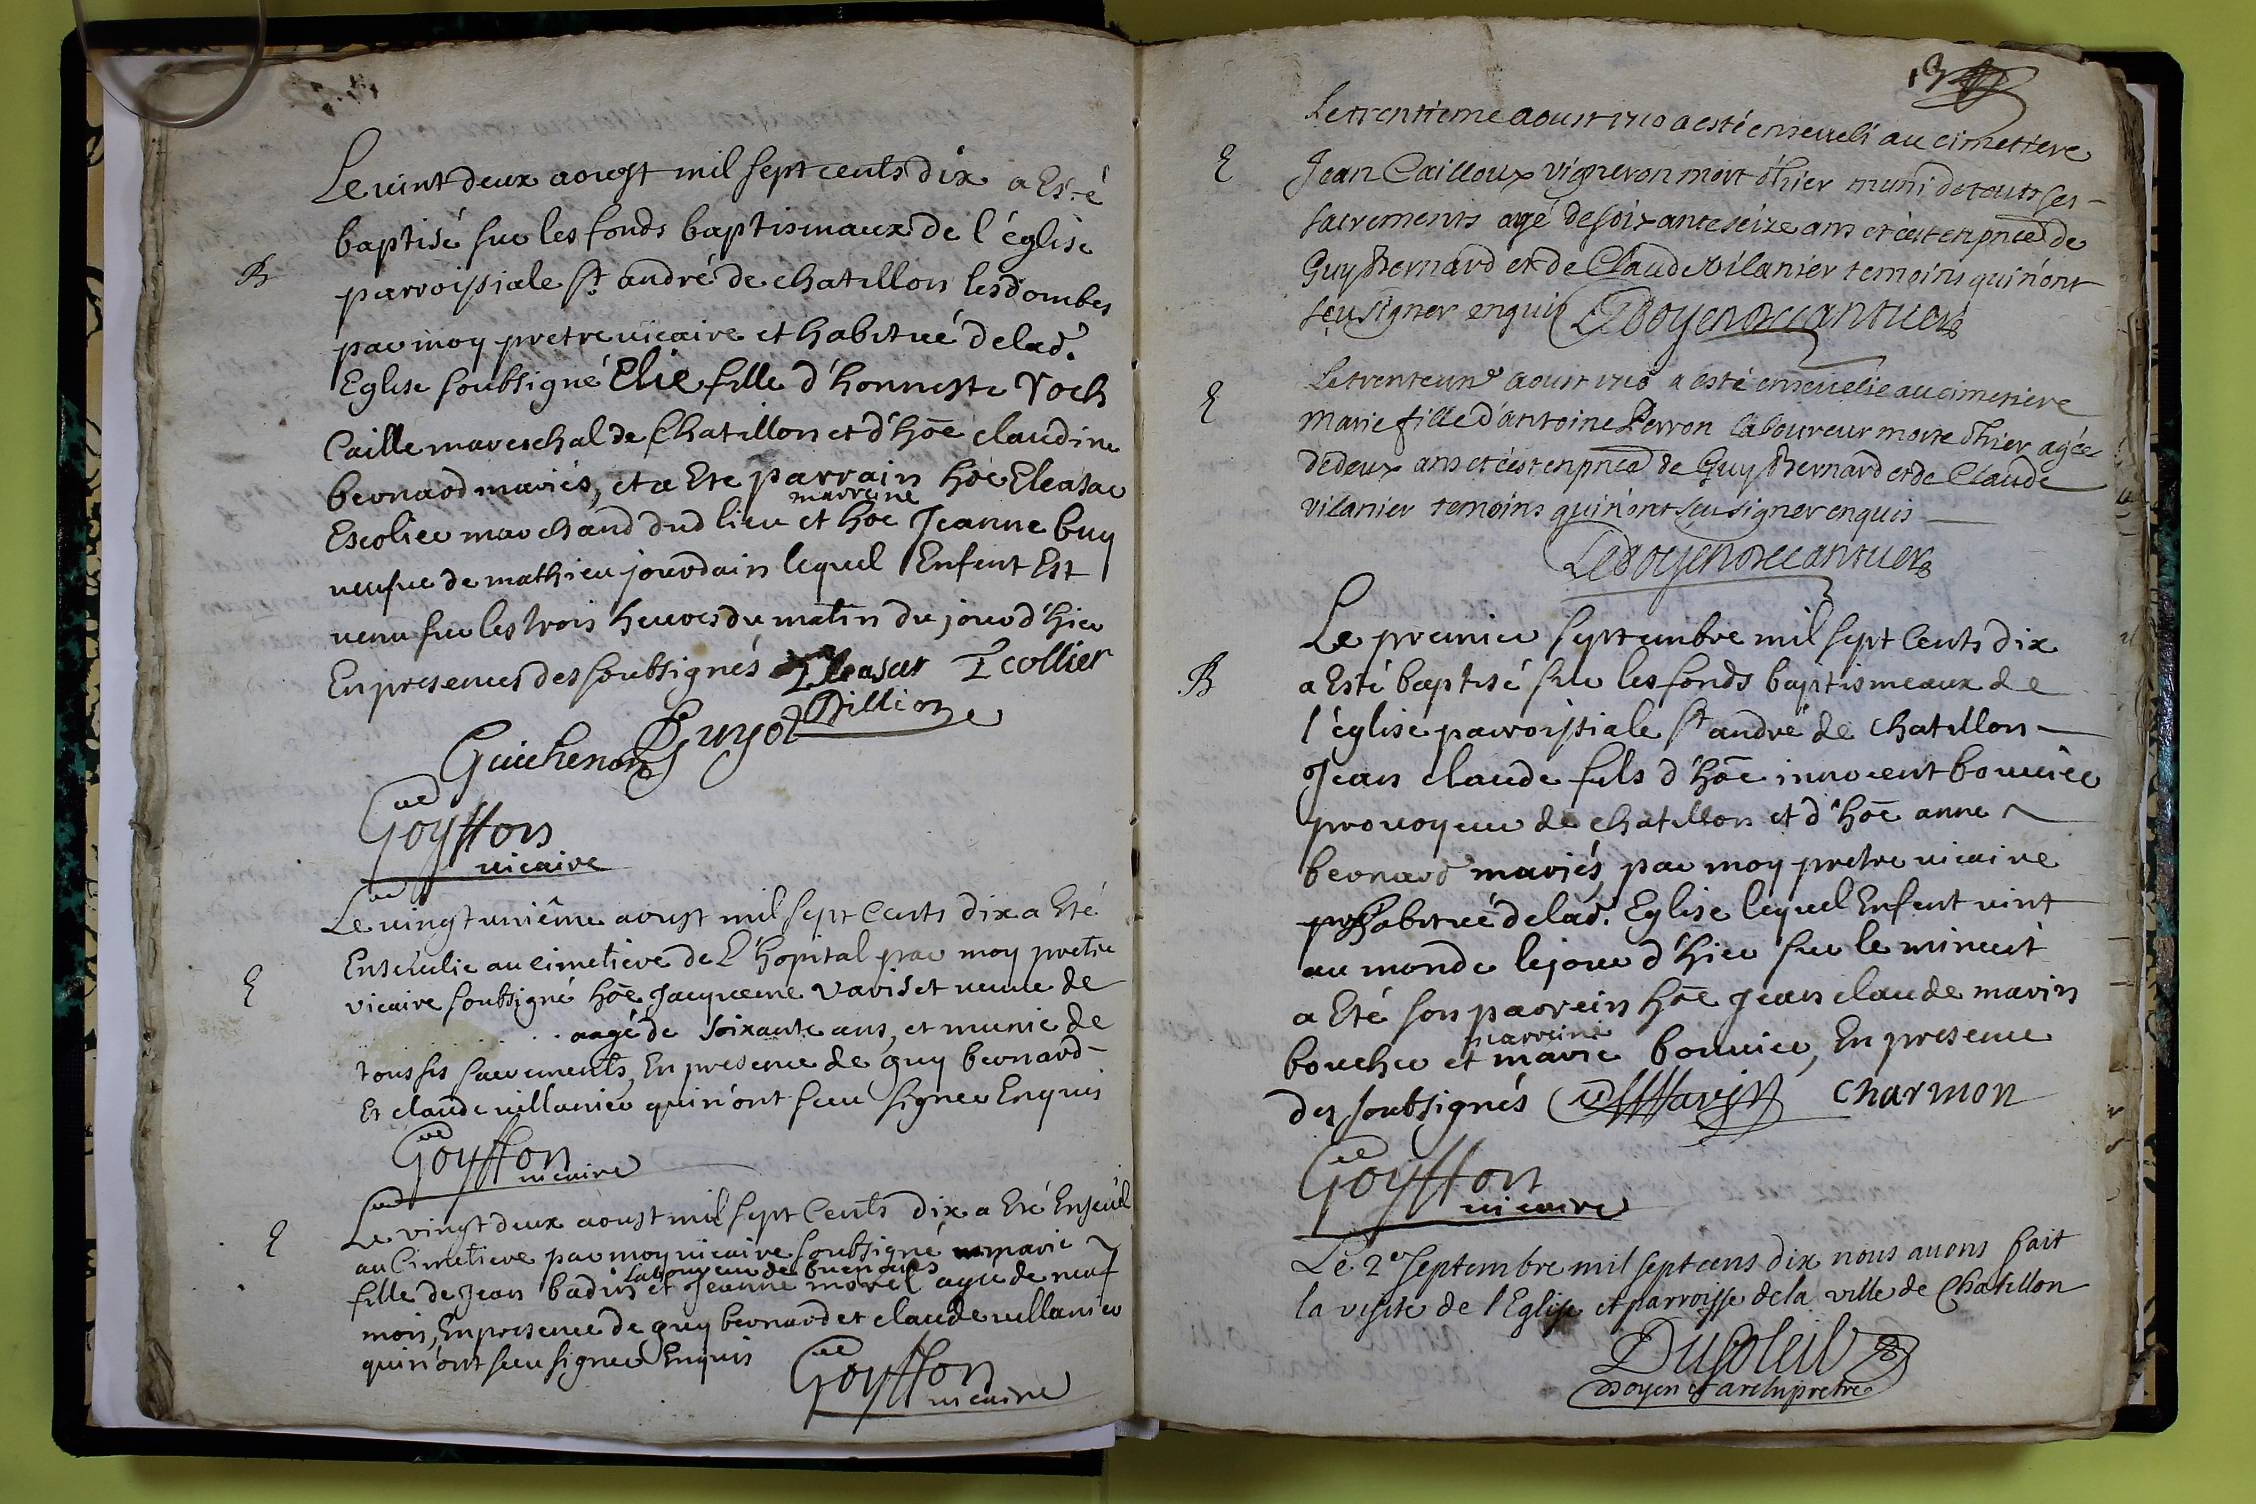 Le vint deux aougst mil sept cents dix a Esté
B
baptisé sur les fonds baptismaux de l'église
parroissiale st andré de chatillon les dombes
par moy pretre vicaire et habitué de lad.
Eglise soubsigné Elie fille d'honneste roch
Caille mareschal de Chatillon et d'hoe claudine
bernard mariés, et a Ete parrain hoe Eleasar
Escolier marchand dud lieu et hoe marreine Jeanne buy
veufve de mathieu jourdain lequel Enfent Est
venu sur les trois heures du matin du jour d'hier
En presences des soubsignés Eleasar Ecollier
Dillion
Guichenon Guyot
Goyffon
vicaire
Le vingt unième aougst mil sept Cents dix a Eté
E
Ensevelie au cimetiere de L'hopital par moy pretre
vicaire soubsigné hoe Jacqueme variset veuve de
aagé de soixante ans, et munie de
tous ses sacrements, En presence de guy bernard
Et claude villanier qui n'ont sceu signer Enquis
Goyffon
vicaire
E
Le vingt deux aougst mil sept Cents dix a Eté Ensevel
au Cimetiere par moy vicaire soubsigné marie
fille de Jean badin laboureur de buenans et Jeanne morel agee de neuf
mois, En presence de guy bernard et claude villanier
qui n'ont sceu signer Enquis
Goyffon
vicaire
Le trentieme aoust 1710 a esté enseveli au cimettiere
E
Jean Cailloux vigneron mort d'hier muni de touts ses
sacrements agé de soixante seize ans et c'est en pnce de
Guy Bernard et de Claude vilanier temoins qui n'ont
sçu signer enquis Le doyen
Le trente un aoust 1710 a esté ensevelie au cimetiere
E
Marie fille d'antoine Perron laboureur morte d'hier agée
de deux ans et c'est en pnce de Guy Bernard et de Claude
vilanier temoins qui n'ont sçu signer enquis
Le doyen
Le premier septembre mil sept Cents dix
B
a Esté baptisé sur les fonds baptismeaux de
l'église parroissiale st andré de chatillon
Jean claude fils d'hoe innocent bouvier
provoyeur de chatillon et d'hoe anne
bernard mariés, par moy pretre vicaire
habitué de lad. Eglise lequel Enfent vint
au monde le jour d'hier sur le minuit
a Eté son parrein hoe Jean claude marin
boucher et marreine marie bouvier, En presence
des soubsignés Marin Charmon
Goyffon
vicaire
Le 2e septembre mil sept cens dix nous avons fait
la visite de l'Eglise et parroisse de la ville de Chatillon
Dusoleil
doyen et archipretre